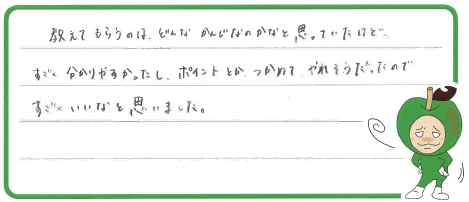 教えてもらうのは、どんなかんじなのかなと思っていたけど、
すごく分かりやすかったし、ポイントとかつかめて、やれそうだったので
すごくいいなと思いました。